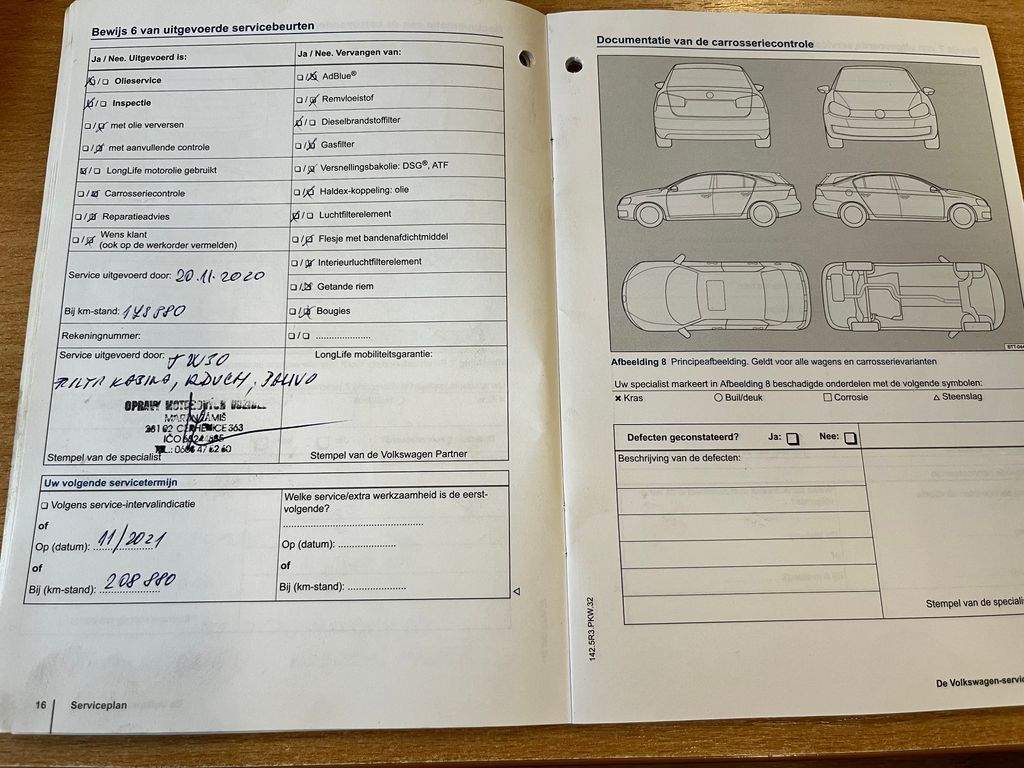 Bewijs 6 van uitgevoerde servicebeurten
Ja / Nee. Uitgevoerd is:
Olieservice
Inspectie
met olie verversen
met aanvullende controle
LongLife motorolie gebruikt
Carrosseriecontrole
Reparatieadvies
Wens klant
(ook op de werkorder vermelden)
Service uitgevoerd door: 20.11.2020
Bij km-stand: 178 880
Rekeningnummer:
Service uitgevoerd door: 5W30
FILTR KABINA, VZDUCH, PALIVO
OPRAVY MOTOROVÝCH VOZIDEL
281 02 CERHENICE 363
IČO
TEL.:
Stempel van de specialist
Ja / Nee. Vervangen van:
AdBlue®
Remvloeistof
Dieselbrandstoffilter
Gasfilter
Versnellingsbakolie: DSG®, ATF
Haldex-koppeling: olie
Luchtfilterelement
Flesje met bandenafdichtmiddel
Interieurluchtfilterelement
Getande riem
Bougies
LongLife mobiliteitsgarantie:
Stempel van de Volkswagen Partner
Uw volgende servicetermijn
Volgens service-intervalindicatie
of
Op (datum): 11/2021
of
Bij (km-stand): 208 880
Welke service/extra werkzaamheid is de eerst-
volgende?
Op (datum):
of
Bij (km-stand):
16 Serviceplan
Documentatie van de carrosseriecontrole
Afbeelding 8 Principeafbeelding. Geldt voor alle wagens en carrosserievarianten
Uw specialist markeert in Afbeelding 8 beschadigde onderdelen met de volgende symbolen:
× Kras ○ Buil/deuk □ Corrosie △ Steenslag
Defecten geconstateerd? Ja: □ Nee: □
Beschrijving van de defecten:
Stempel van de speciali
142.5R3.PKW.32
De Volkswagen-servic